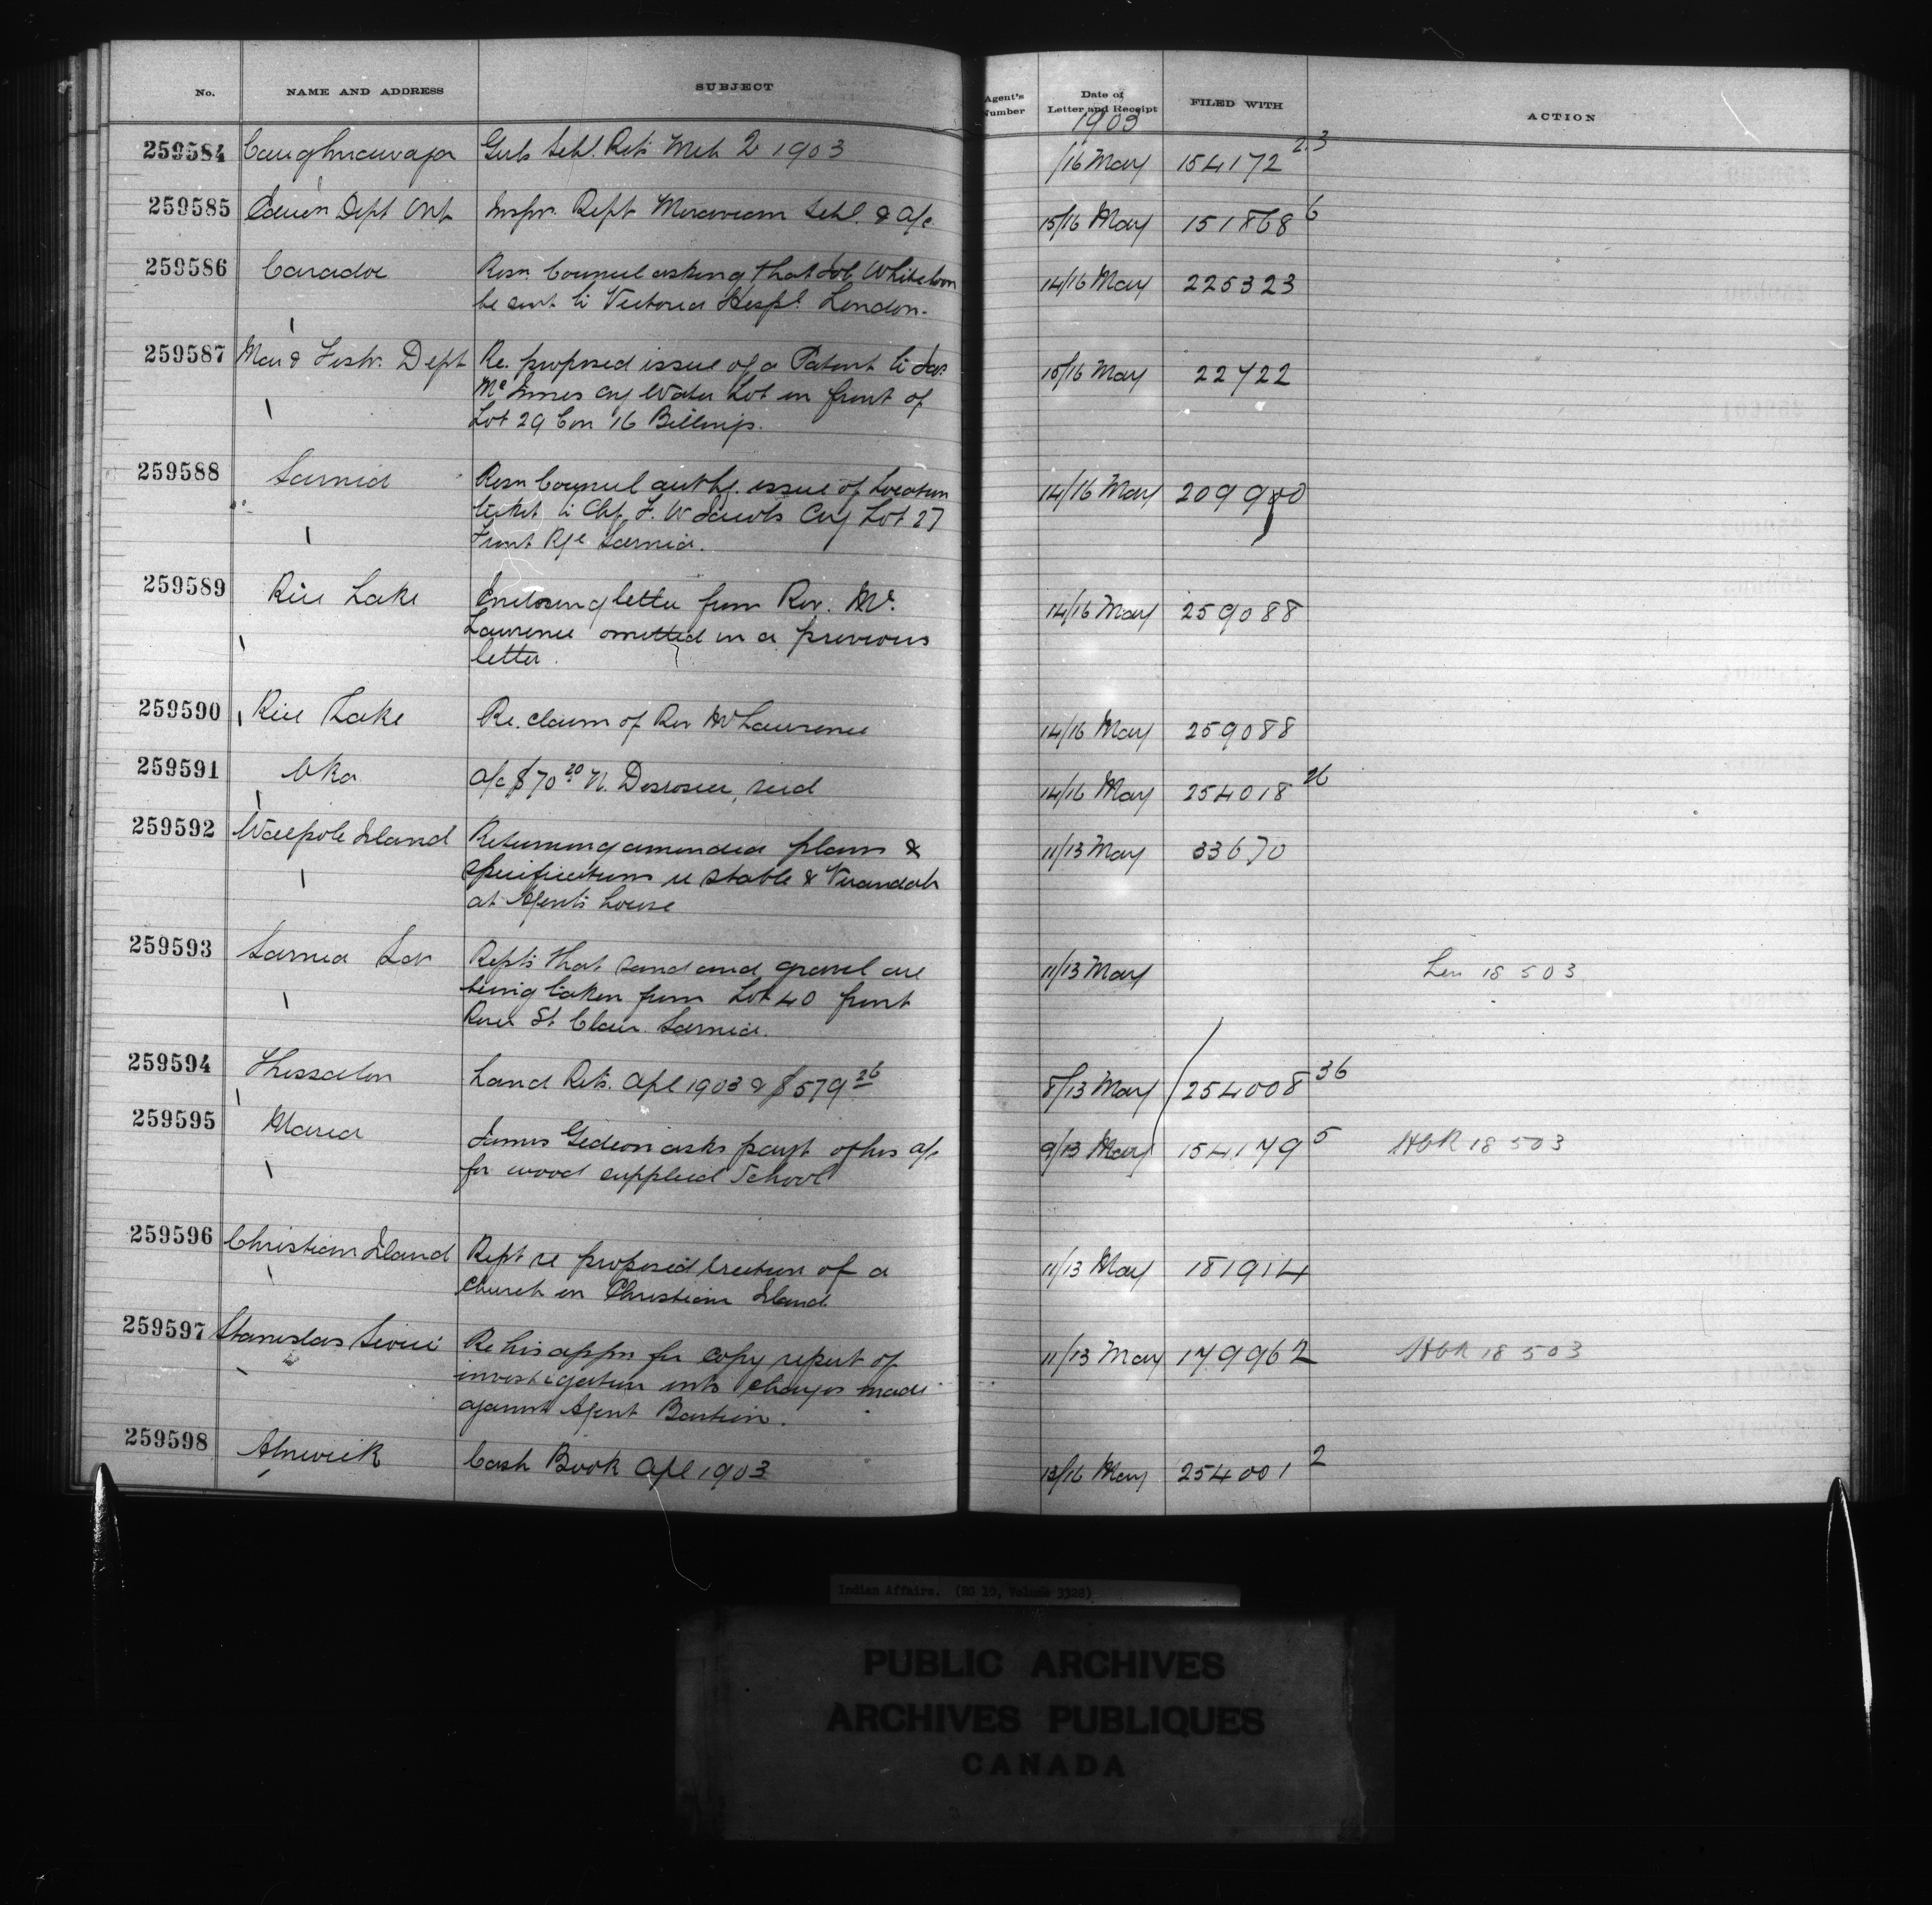 No. NAME AND ADDRESS SUBJECT Agent's Number Date of Letter and Receipt FILED WITH ACTION
1903
259584 Caughnawaga Girls Schl. Rets Mch 2 1903 /16 May 154172 23
259585 Educn Dept Ont Inspr. Rept Moravian Schl. & a/c 15/16 May 151868 6
259586 Caradoc Resn Council asking that Job Whiteloon 14/16 May 225323
be sent to Victoria Hospl. London.
259587 Mar & Fish. Dept Re. proposed issue of a Patent to Jas. 15/16 May 22722
McInnes cvg Water Lot in front of
Lot 29 Con 16 Billings.
259588 Sarnia Resn Council authg. issue of Location 14/16 May 209900
ticket to Chf. F. W Jacobs Cvg Lot 27
Front Rge Sarnia.
259589 Rice Lake Enclosing letter from Rev. Mr. 14/16 May 259088
Lawrence omitted in a previous
letter.
259590 Rice Lake Re. claim of Rev Mr Lawrence 14/16 May 259088
259591 Oka a/c $70 20 N. Desrosier, seed 14/16 May 254018 26
259592 Walpole Island Returning amended plans & 11/13 May 33670
specifications re stable & Verandah
at Agent's house
259593 Sarnia Repts that sand and gravel are 11/13 May 18 5 03
being taken from Lot 40 front
River St. Clair. Sarnia.
259594 Thessalon Land Rets. Apl 1903 & $579 26 8/13 May 254008 36
259595 Maria James Gideon asks payt of his a/c 9/13 May 154179 5 HCR 18 5 03
for wood supplied School
259596 Christian Island Rept re proposed erection of a 11/13 May 181914
Church on Christian Island
259597 Stanislas Sioui Re his appn for copy report of 11/13 May 179962 HCR 18 5 03
investigation into charges made
against Agent Bastien.
259598 Alnwick Cash Book Apl 1903 13/16 May 254001 2
Indian Affairs. (RG 10, Volume 3328)
PUBLIC ARCHIVES
ARCHIVES PUBLIQUES
CANADA